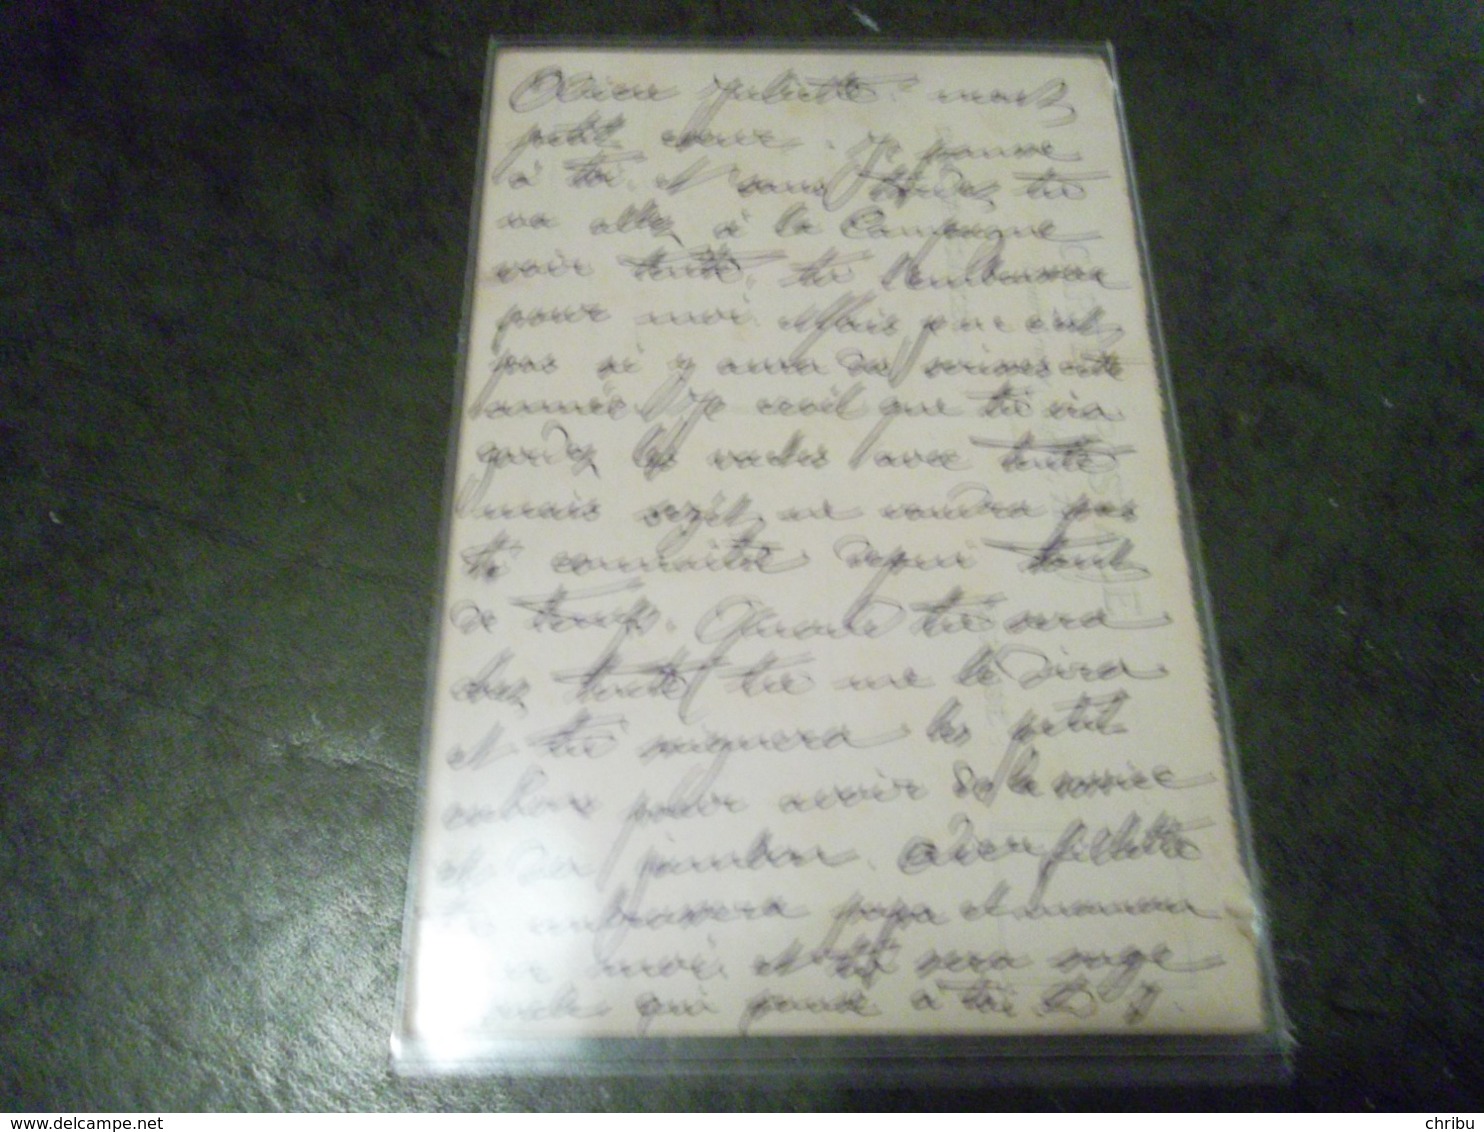 Chère Juliette mon
petit cœur. Je panse
à toi. et sans tardez tu
va allez à la Campagne
voir tente. tu l'embrassera
pour moi. Mais que c'est
pas si y aura des serises cette
année. Je croil que tu ira
gardez les vaches avec tente
mais ne voudra pas
te connaitre depui tout
de temps. Quand tu sera
chez tente tu me le dira
et tu soignera les petit
cochon pour avoir de la
et du jambon. Adieu fillette
tu embrassera papa et maman
moi. et tu sera sage
qui panse à toi.
www.delcampe.net
chribu